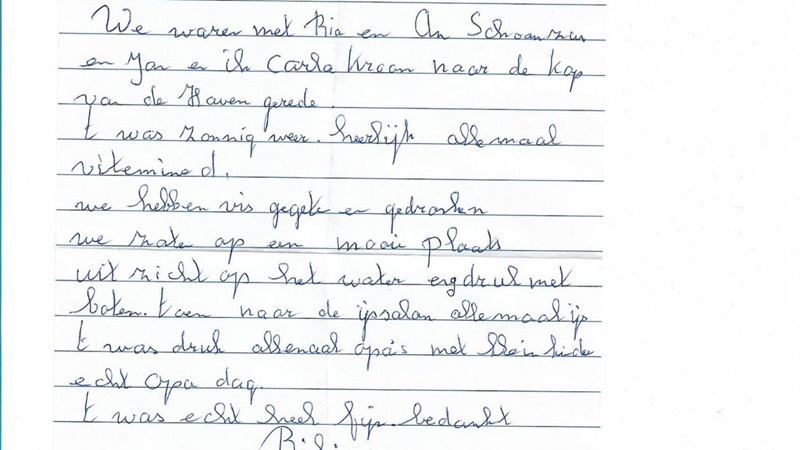 We waren met Ria en An Schoen
en Jan en ik Carla Kroon naar de kop
van de Haven gerede.
t was zonnig weer. heerlijk allemaal
vitemine d.
we hebben vis gegete en gedronken
we zate op een mooie plaats
uit zicht op het water erg druk met
boten. toen naar de ijssalon allemaal ijs
t was druk allemaal opa's met klein kinder
echt opa dag.
t was echt heel fijn. bedankt